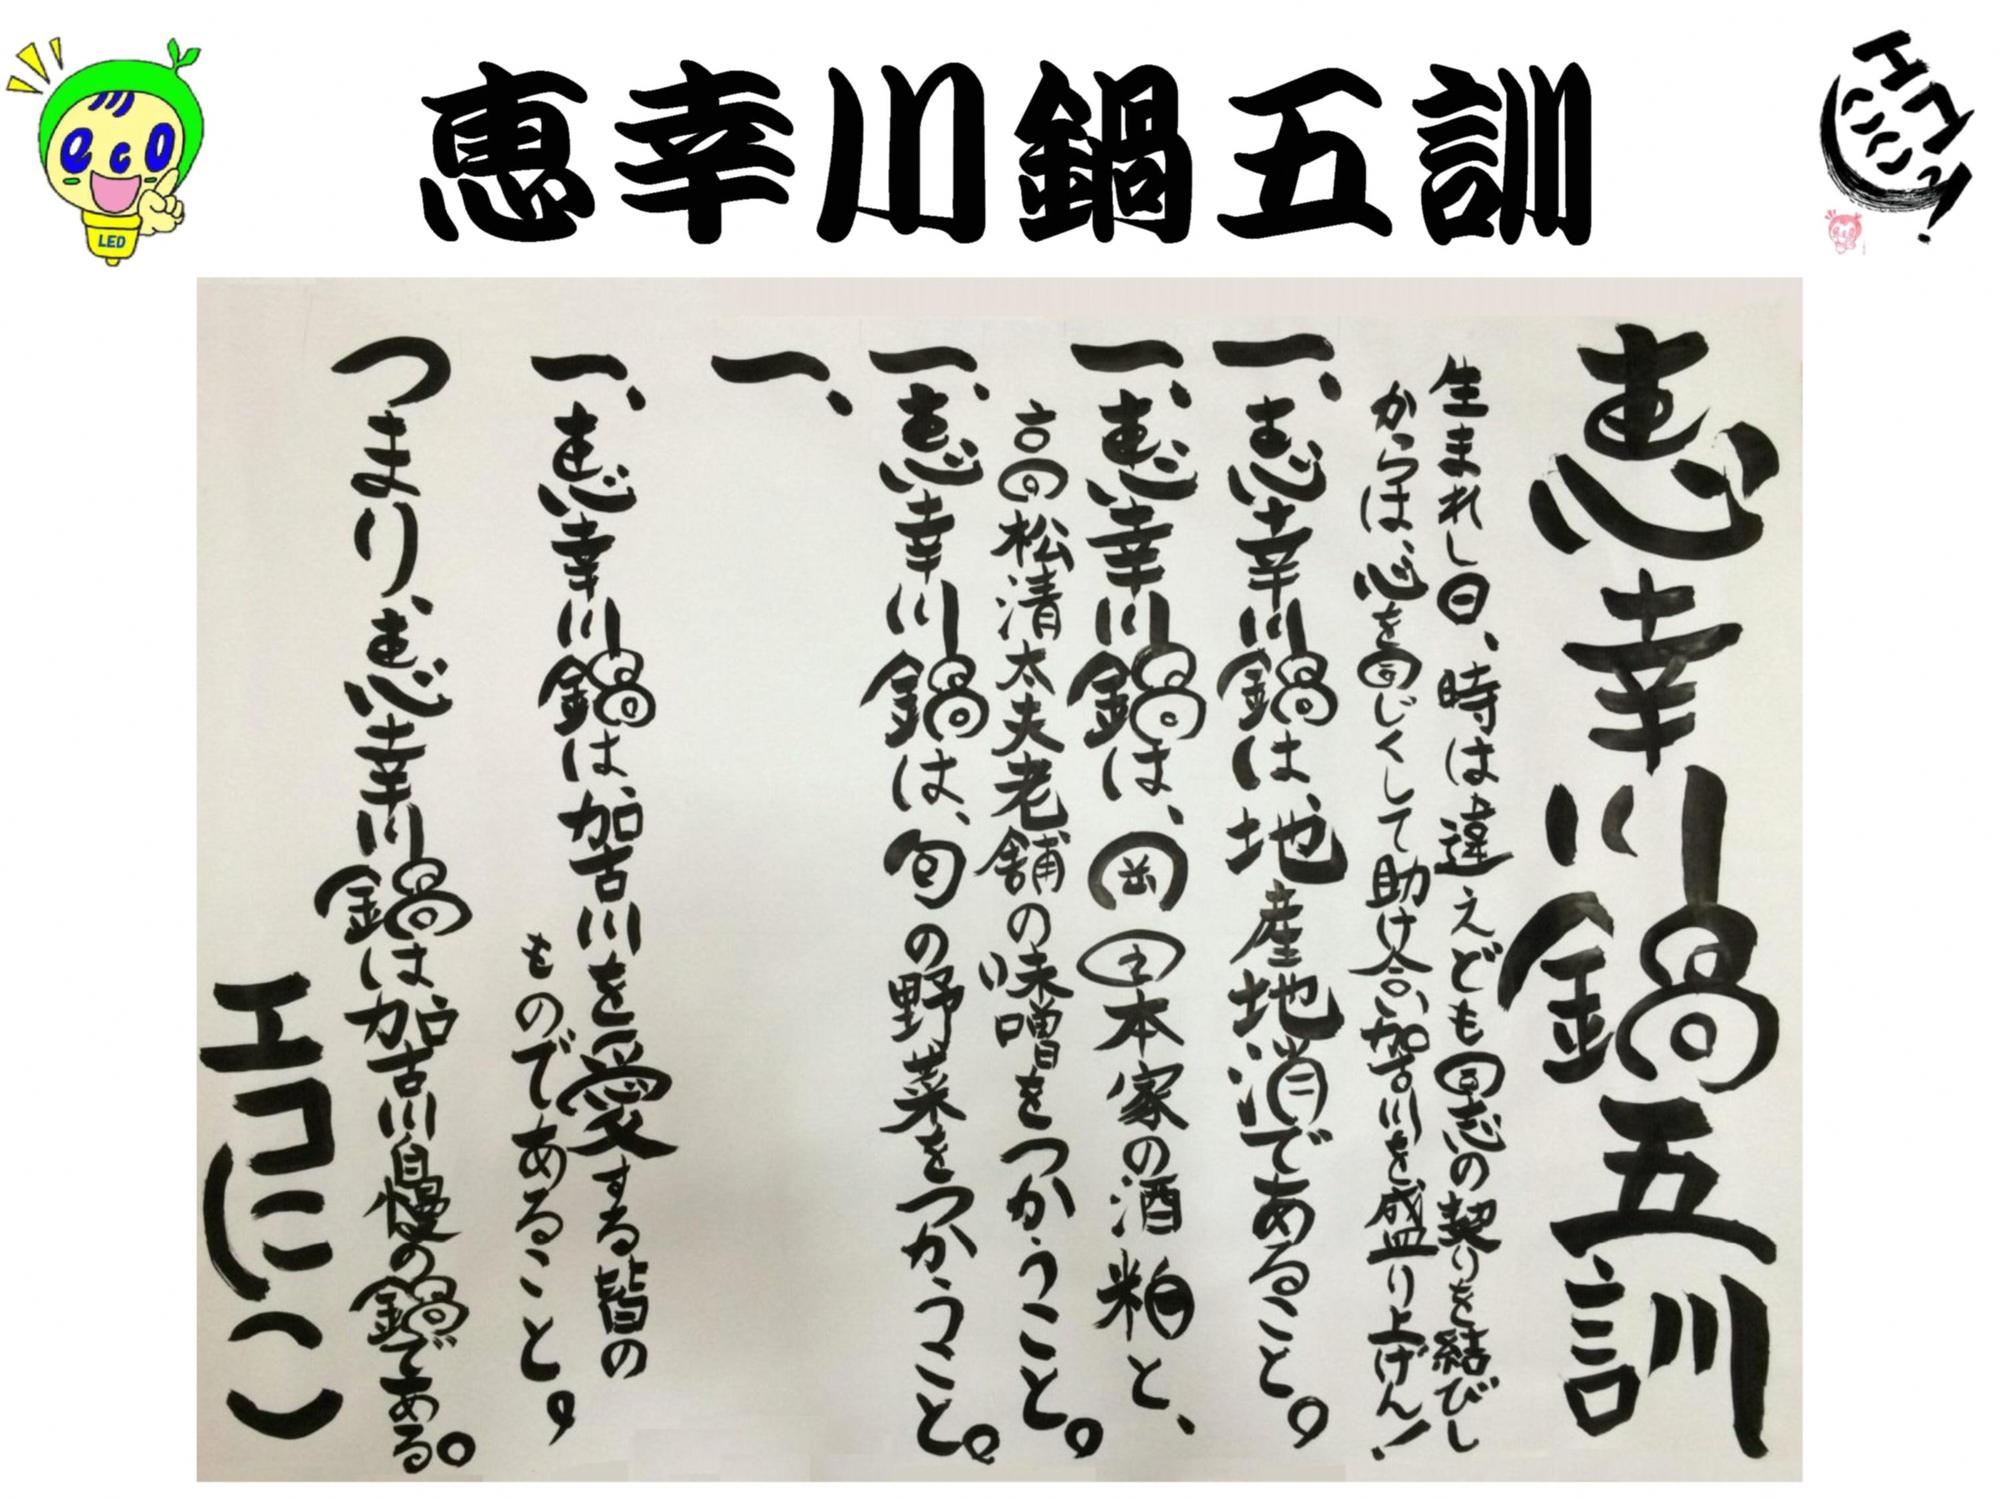 恵幸川鍋五訓
eco
LED
エコにこっ!
恵幸川鍋五訓
生まれし日、時は違えども同志の契りを結びし
からは、心を同じくして助け合い加古川を盛り上げん!
一、恵幸川鍋は、地産地消であること。
一、恵幸川鍋は、岡田本家の酒粕と、
高の松清太夫老舗の味噌をつかうこと。
一、恵幸川鍋は、旬の野菜をつかうこと。
一、
一、恵幸川鍋は、加古川を愛する皆の
ものであること。
つまり、恵幸川鍋は加古川自慢の鍋である。
エコにこ